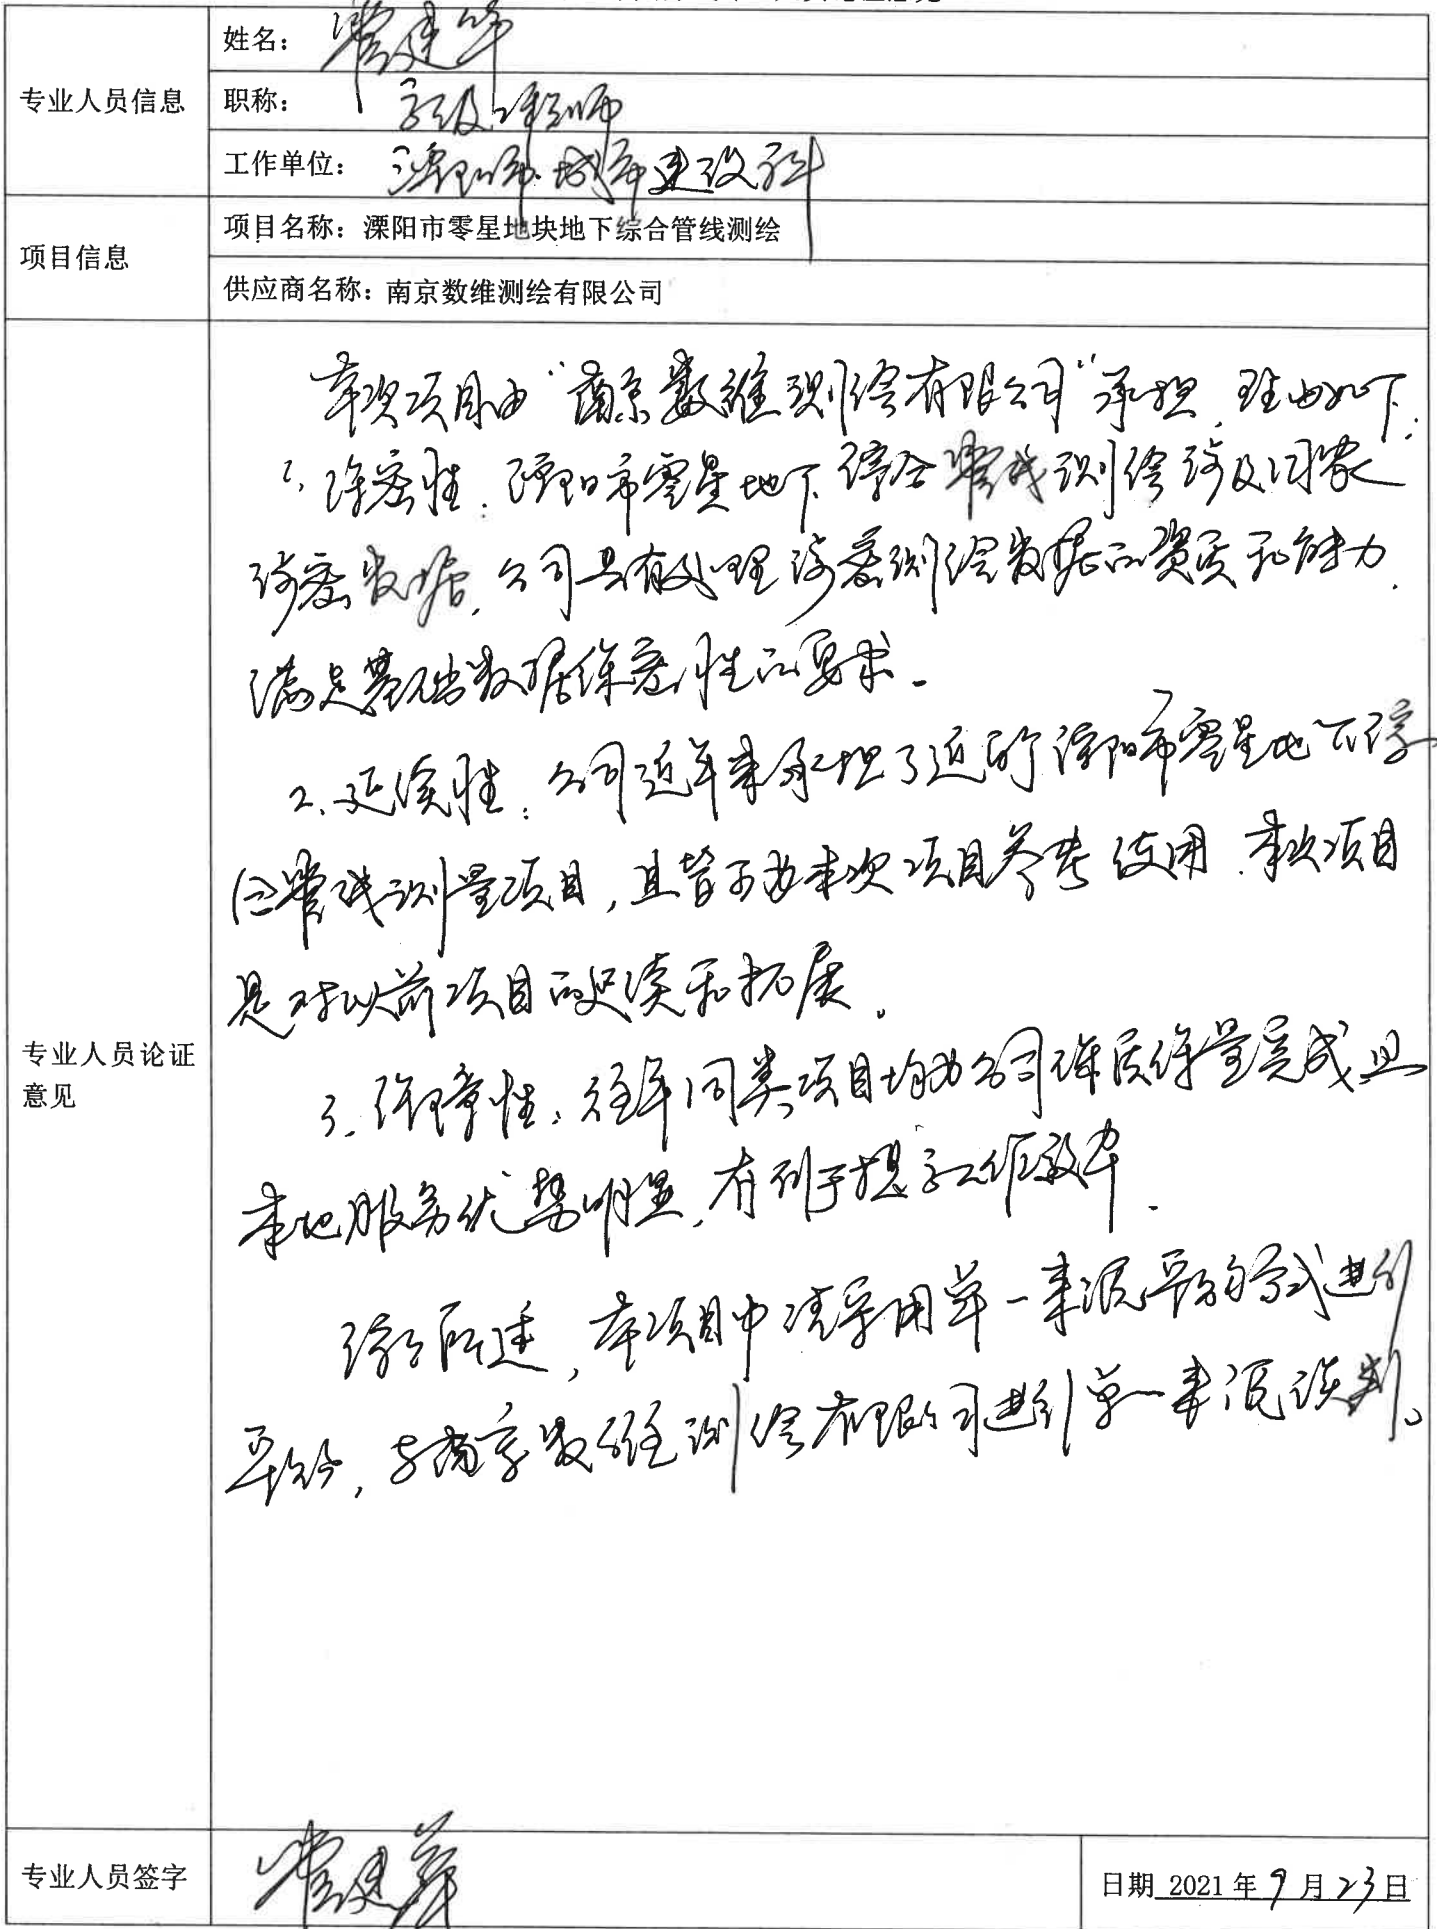 专业人员信息
姓名: 管建华
职称: 高级工程师
工作单位: 溧阳市城市建设科
项目信息
项目名称: 溧阳市零星地块地下综合管线测绘
供应商名称: 南京数维测绘有限公司
专业人员论证
意见
本次项目由“南京数维测绘有限公司”承担,理由如下:
1、保密性:溧阳市零星地下综合管线测绘涉及国家
涉密数据,公司具有处理涉密测绘数据的资质和能力,
满足基础数据保密性的要求.
2、延续性:公司近年来承担了近的溧阳市零星地下综
合管线测量项目,且皆可为本次项目参考使用.本次项目
是对以前项目的延续和拓展。
3、保障性:往年同类项目均为公司保质保量完成,且
本地服务优势明显,有利于提高工作效率.
综上所述,本项目申请采用单一来源采购的方式进行
采购,与南京数维测绘有限公司进行单一来源谈判。
专业人员签字
管建华
日期 2021年9月23日